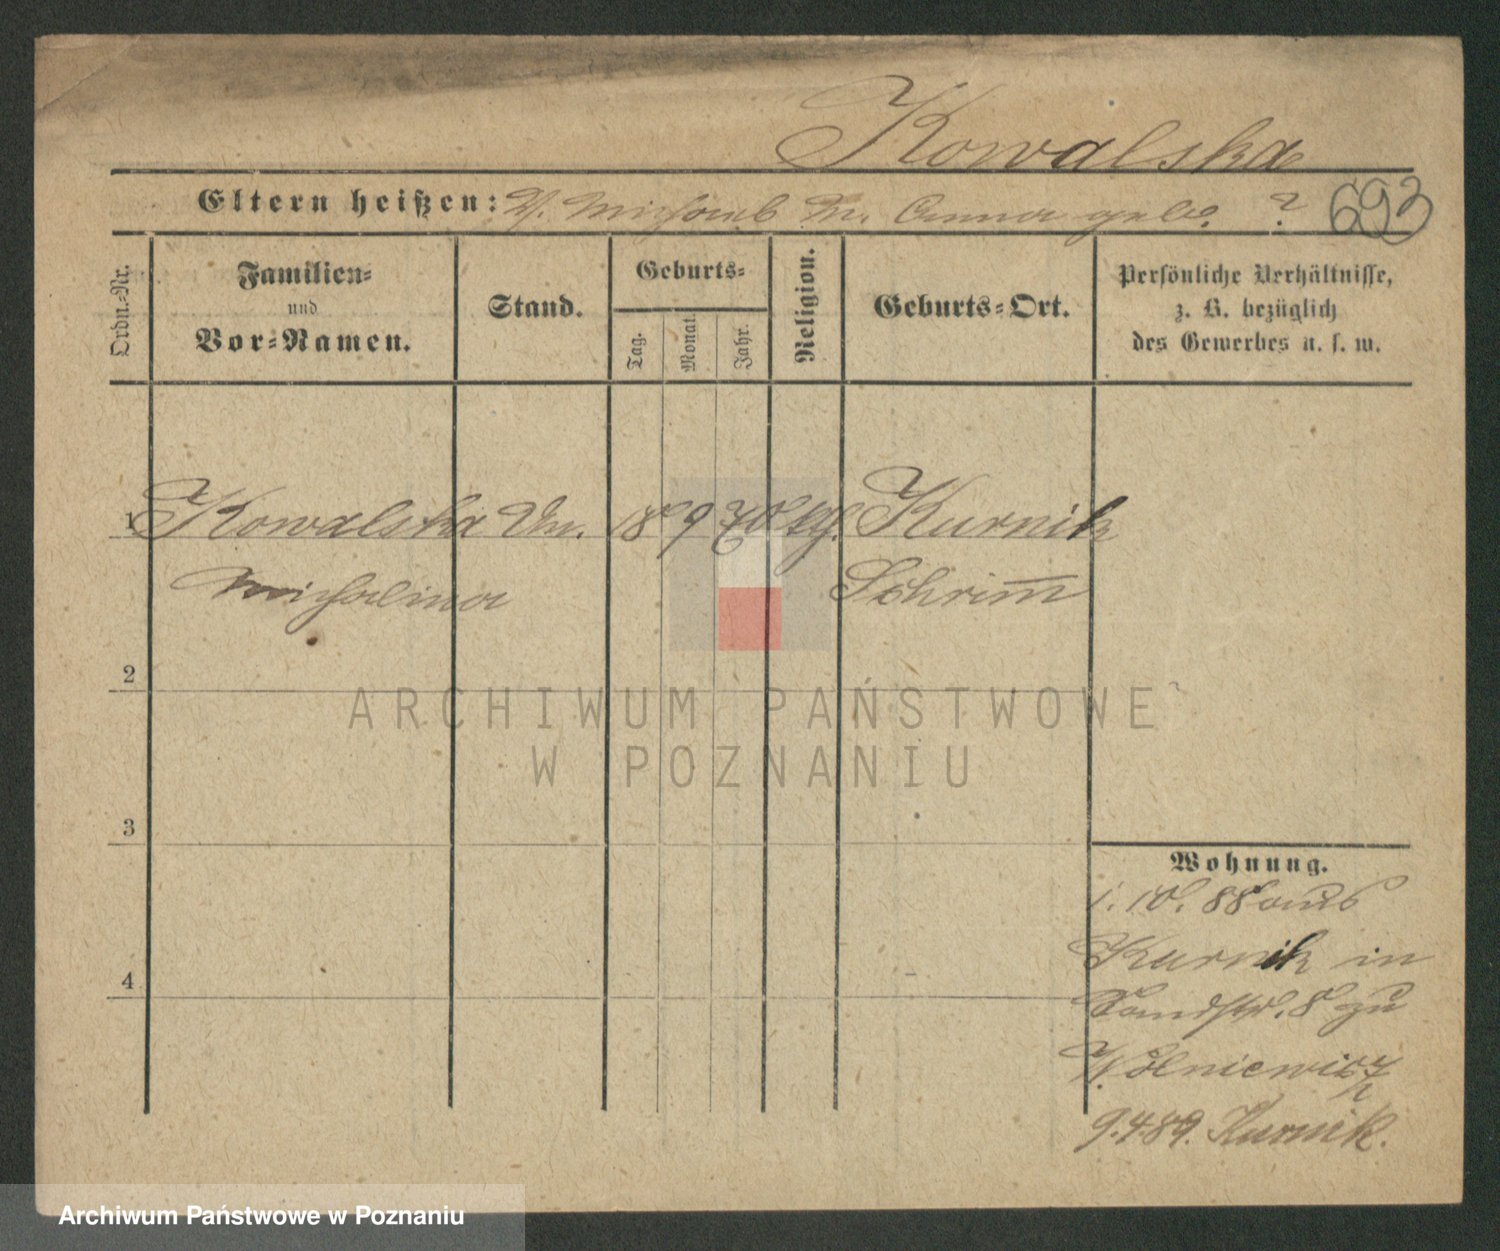 Kowalska
Eltern heißen: V. Michael M. Anna geb. ? 693
Ordn.-Nr.
Familien-
und
Vor-Namen.
Stand.
Geburts-
Tag.
Monat.
Jahr.
Religion.
Geburts-Ort.
Persönliche Verhältnisse,
z. B. bezüglich
des Gewerbes u. s. w.
1 Kowalska 18 9 70 kf. Kurnik
Michalina Schrimm
2
3
4
Wohnung.
1. 10. 88 aus
Kurnik in
Sandstr. 8 zu
9.4.89. Kurnik.
ARCHIWUM PAŃSTWOWE
W POZNANIU
Archiwum Państwowe w Poznaniu